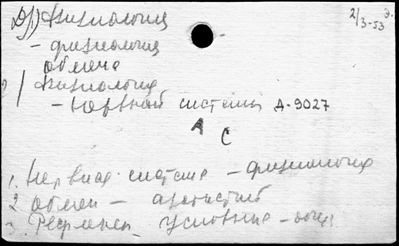 Физиология
2/3-53 г.
- физиология
обмена
Физиология
- нервной системы Д-9027
А С
1. Нервная система - физиология
2. Обмен -
3. Рефлексы условные -